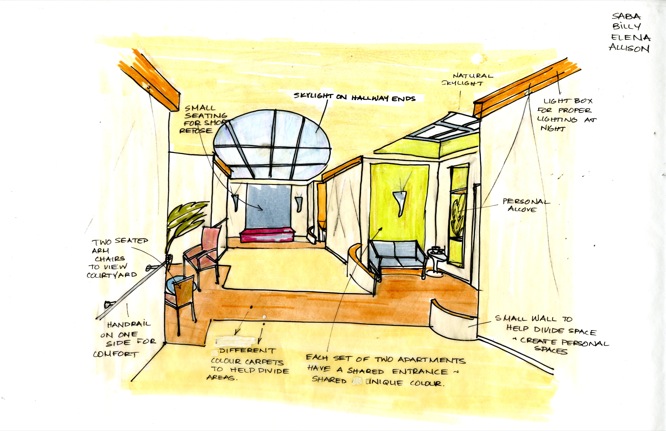 SABA
BILLY
ELENA
ALLISON
SKYLIGHT ON HALLWAY ENDS
NATURAL
SKYLIGHT
SMALL
SEATING
FOR SHORT
REPOSE
LIGHT BOX
FOR PROPER
LIGHTING AT
NIGHT
PERSONAL
ALCOVE
TWO SEATED
ARM
CHAIRS
TO VIEW
COURTYARD
HANDRAIL
ON ONE
SIDE FOR
COMFORT
DIFFERENT
COLOUR CARPETS
TO HELP DIVIDE
AREAS.
EACH SET OF TWO APARTMENTS
HAVE A SHARED ENTRANCE +
SHARED UNIQUE COLOUR.
SMALL WALL TO
HELP DIVIDE SPACE
+ CREATE PERSONAL
SPACES